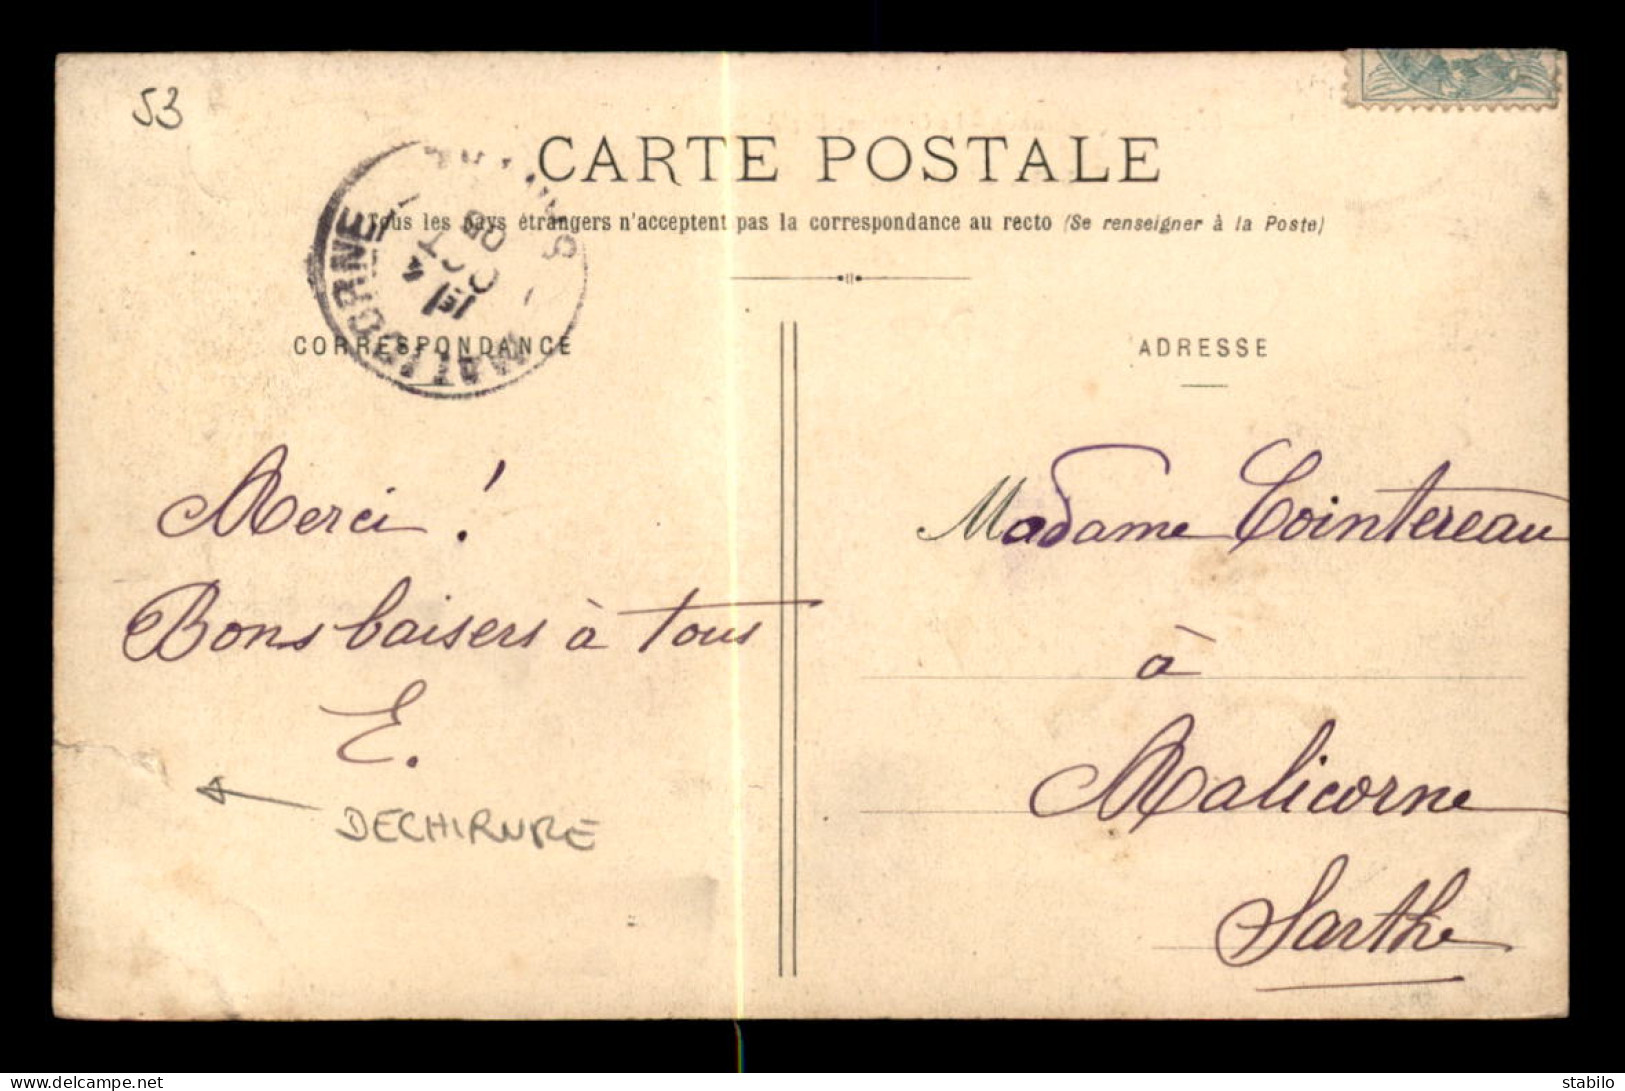 53
CARTE POSTALE
Tous les pays étrangers n'acceptent pas la correspondance au recto (Se renseigner à la Poste)
MALICORNE
CORRESPONDANCE
ADRESSE
Merci !
Bons baisers à tous
E.
DECHIRURE
Madame Cointereau
à
Malicorne
Sarthe
www.delcampe.net
stabilo